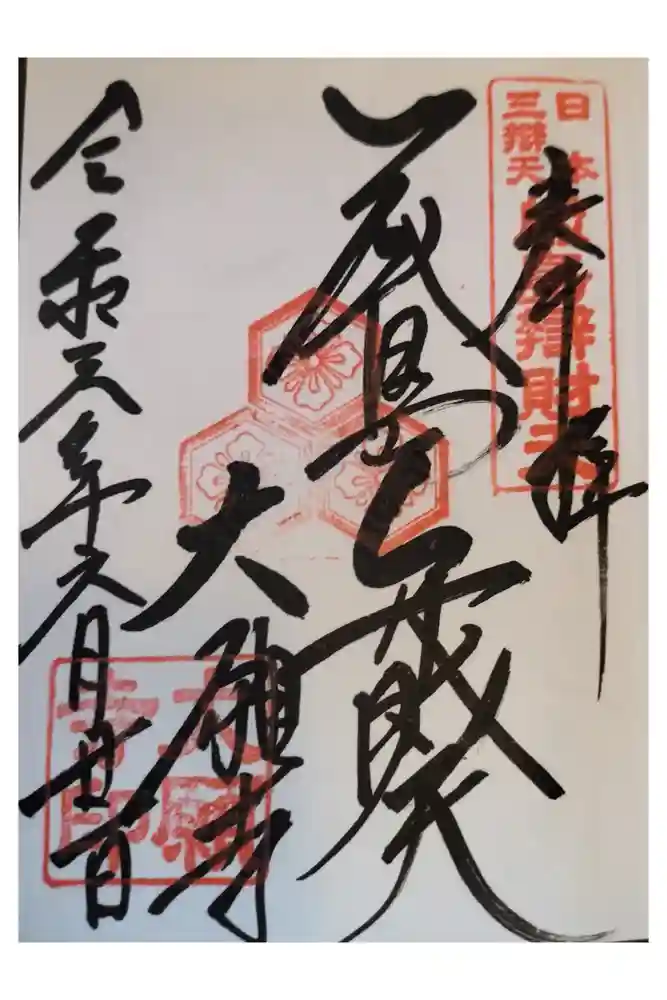 日本
三辯天
嚴島辯財天
奉拝
厳島弁財天
大願寺
大願寺印
令和三年六月廿一日